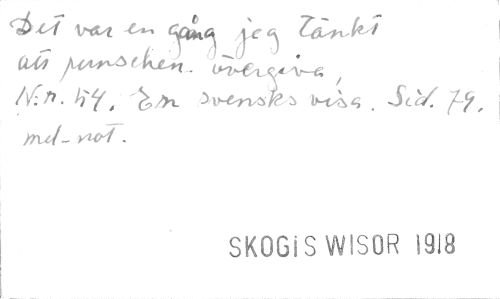 Det var en gång jeg tänkt
att punschen. övergiva,
N:r. 54. En svensks visa. Sid. 79.
mel-not.
SKOGiS WISOR 1918